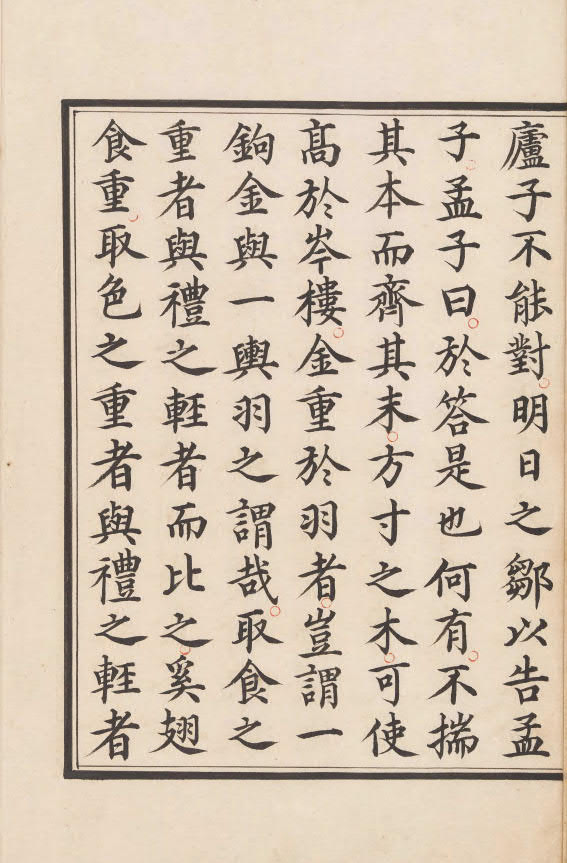 廬子不能對。明日之鄒以告孟
子。孟子曰。於答是也何有。不揣
其本而齊其末。方寸之木。可使
髙於岑樓。金重於羽者。豈謂一
鉤金與一輿羽之謂哉。取食之
重者與禮之輕者而比之。奚翅
食重。取色之重者與禮之輕者